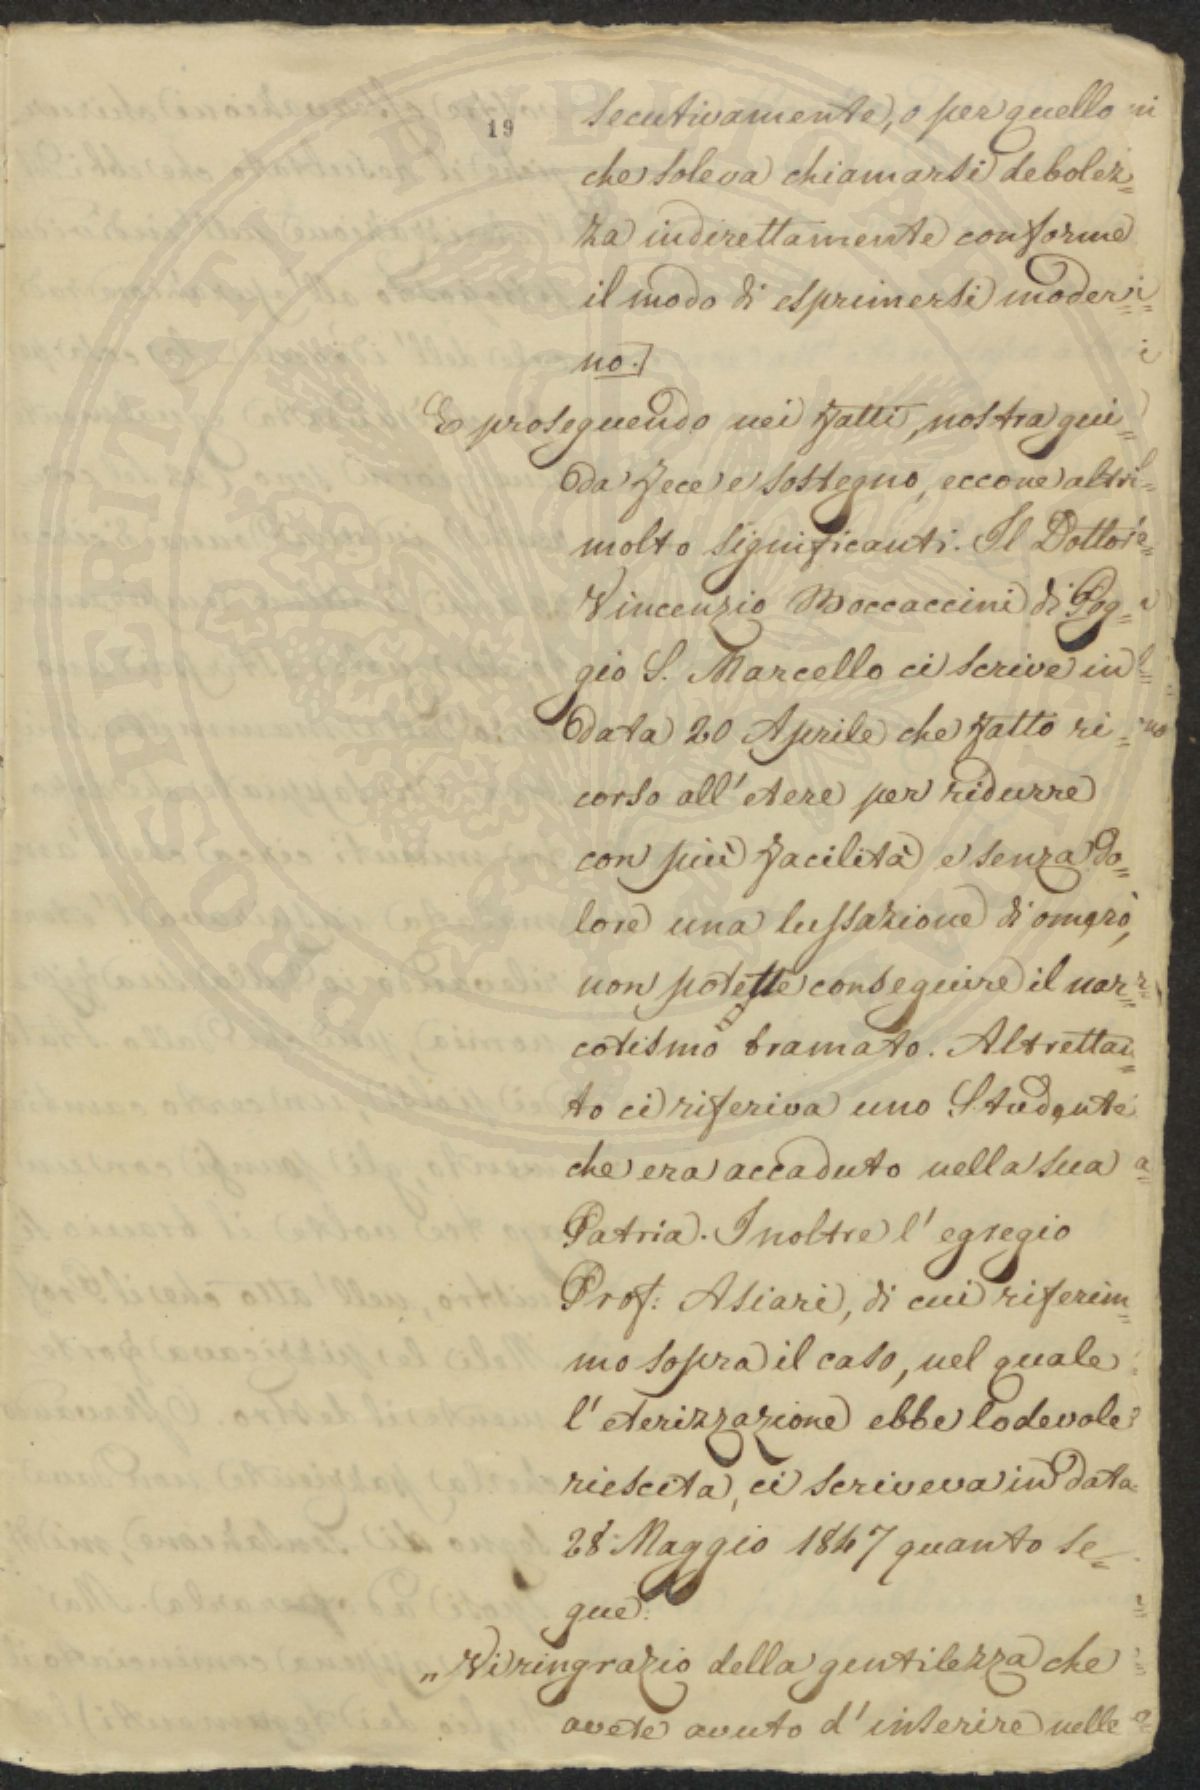 19
secutivamente, o per quello
che soleva chiamarsi debolez=
za indirettamente conforme
il modo di esprimersi moder=
no.]
E proseguendo nei fatti, nostra gui=
da fece e sostegno, eccone altri
molto significanti. Il Dottore
Vincenzio Boccaccini di Pog=
gio S. Marcello ci scrive in
data 20 Aprile che fatto ri=
corso all' etere per ridurre
con più facilità e senza do=
lore una lussazione di omero,
non potette conseguire il nar=
cotismo bramato. Altrettan=
to ci riferiva uno Studente
che era accaduto nella sua
Patria. Inoltre l' egregio
Prof: Asiari, di cui riferim=
mo sopra il caso, nel quale
l' eterizzazione ebbe lodevole
riescita, ci scriveva in data
28 Maggio 1847 quanto se=
gue:
„ Vi ringrazio della gentilezza che
avete avuto d' inserire nelle